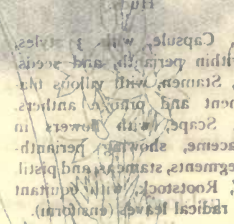 Huds.
Capsule, with 3 styles,
within perianth, and seeds
, Stamen, with villous fila-
ment and orange anthers.
Scape, with flowers in
raceme, showing perianth-
segments, stamens, and pistil.
, Rootstock, with equitant
radical leaves (ensiform).